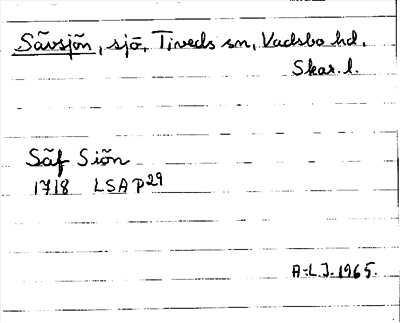 Sävsjön, sjö, Tiveds sn, Vadsbo hd,
Skar. l.
Säf Siön
1718 LSA P29
A-L.J. 1965.